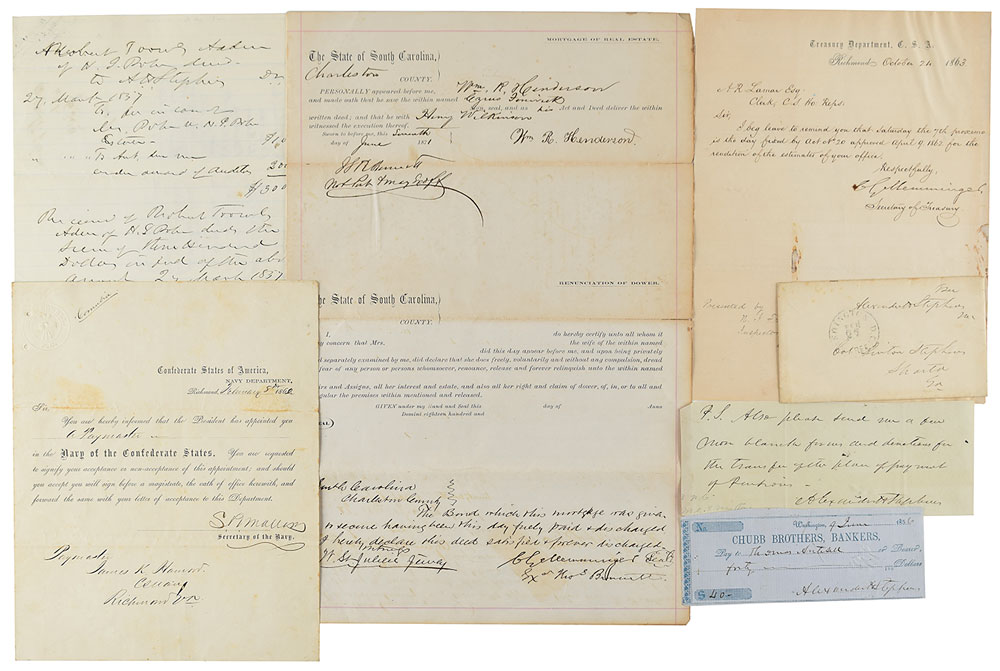 Robert Toombs Admr
of H. T. Pope decd
to A H Stephens Dr
27 March 1857
under award of auditors 300
$1300
Received of Robert Toombs
Admr of H. T. Pope decd the
sum of Hundred
Dollars in full of the abo
27 March 1857
MORTGAGE OF REAL ESTATE.
The State of South Carolina,
Charleston COUNTY.
PERSONALLY appeared before me, Wm. R. Henderson
and made oath that he saw the within named
sign, seal, and as his Act and Deed deliver the within
written deed; and that he with Henry Wilkinson
witnessed the execution thereof.
Sworn to before me, this Seventh
day of June 1871
Wm R. Henderson
Not Pub
RENUNCIATION OF DOWER.
The State of South Carolina,
COUNTY.
I, do hereby certify unto all whom it
may concern that Mrs. the wife of the within named
did this day appear before me, and upon being privately
and separately examined by me, did declare that she does freely, voluntarily and without any compulsion, dread
fear of any person or persons whomsoever, renounce, release and forever relinquish unto the within named
irs and Assigns, all her interest and estate, and also all her right and claim of dower, of, in, or to all and
gular the premises within mentioned and released.
GIVEN under my Hand and Seal this day of Anno
Domini eighteen hundred and
South Carolina
Charleston County
The Bond which this mortgage was given
to secure having been this day fully paid & discharged
I hereby declare this deed satisfied & forever discharged
C. G. Memminger
Exor Thos Bennett
Treasury Department, C. S. A.
Richmond October 24 1863
A R Lamar Esq
Clerk, C S Ho Reps.
Sir,
I beg leave to remind you that Saturday the 7th proximo
is the day fixed by Act No 20 approved April 9, 1862 for the
rendition of the estimates of your office.
Respectfully,
C. G. Memminger
Secretary of Treasury
Alexander H Stephens
Col Linton Stephens
Sparta
Ga
Confederate States of America,
NAVY DEPARTMENT,
Richmond, February 1862
Sir:
You are hereby informed that the President has appointed you
a Paymaster
in the Navy of the Confederate States. You are requested
to signify your acceptance or non-acceptance of this appointment; and should
you accept you will sign before a magistrate, the oath of office herewith, and
forward the same with your letter of acceptance to this Department.
S R Mallory
Secretary of the Navy.
Paymaster
James K Harwood
CS Navy
Richmond Va
P.S. Also please send me a few
more blank forms and directions for
the transfer of the place of payment
of Pensions
Alexander H Stephens
No.
Washington, 9 June 185
CHUBB BROTHERS, BANKERS,
Pay to Thomas or Bearer,
forty Dollars
$ 40
Alexander H Stephens